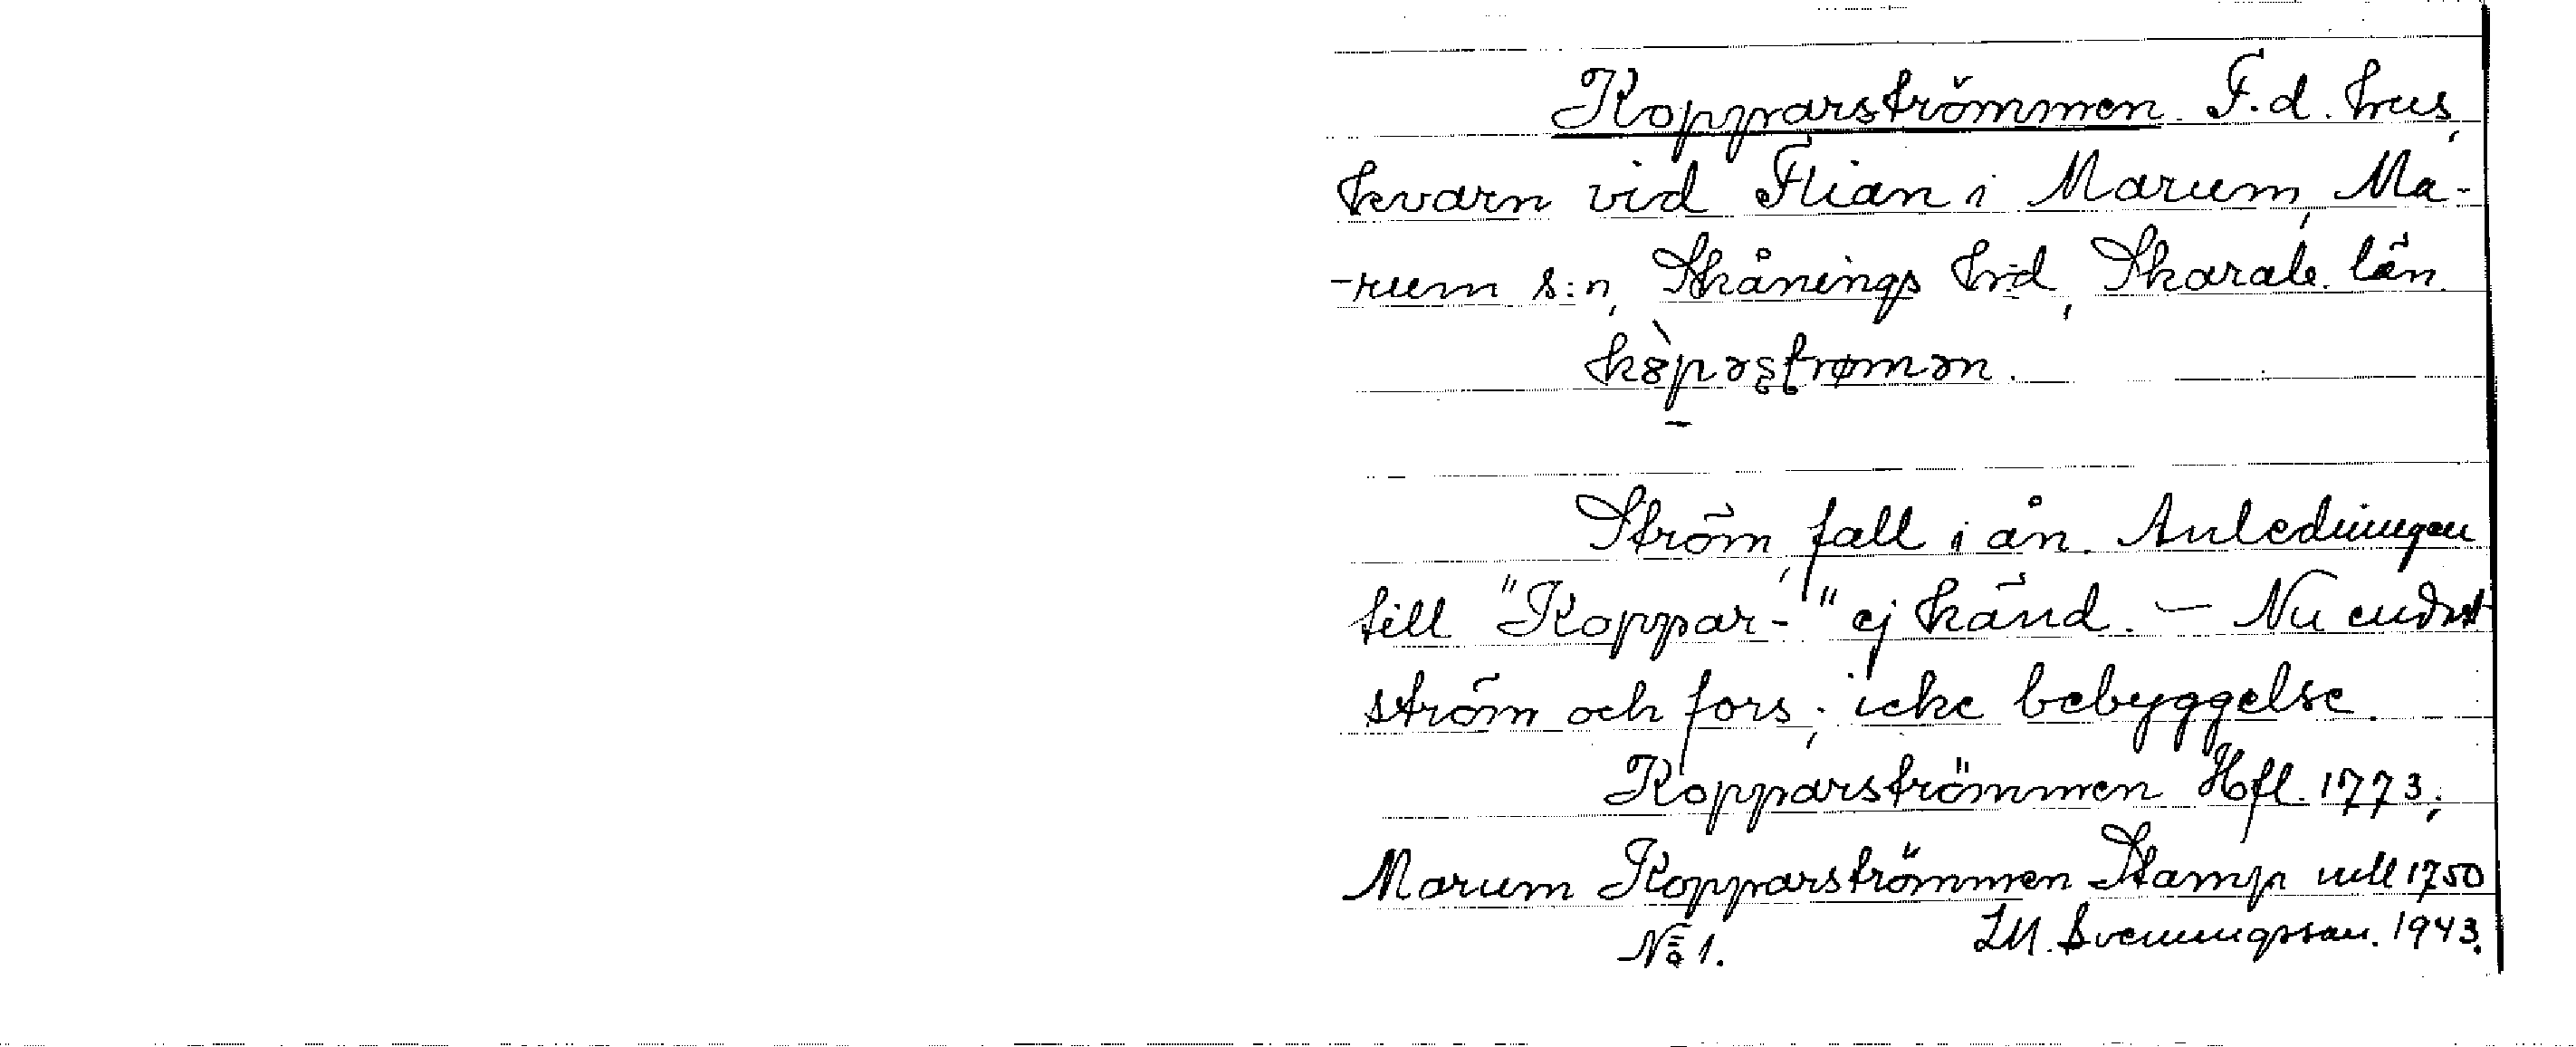 Kopparströmmen. F.d. hus,
kvarn vid Flian i Marum, Ma-
-rum s:n, Skånings hd, Skarab. län.
kòpaʂtrømən.
Ström, fall i ån. Anledningen
till "Koppar-" ej känd. – Nu endast
ström och fors; icke bebyggelse.
Kopparströmmen Hfl. 1773;
Marum Kopparströmmen Stamp mtl 1750
No 1. J.M. Svenungsson. 1943.